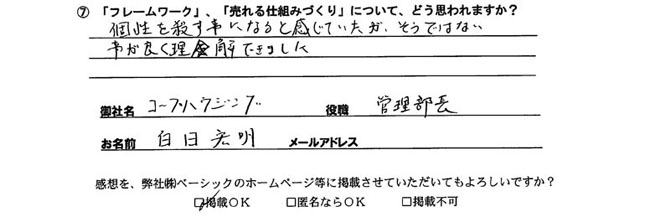 ⑦ 「フレームワーク」、「売れる仕組みづくり」について、どう思われますか?
個性を殺す事になると感じていたが、そうではない
事が良く理解できました
御社名 コープハウジング 役職 管理部長
お名前 白日宏明 メールアドレス
感想を、弊社㈱ベーシックのホームページ等に掲載させていただいてもよろしいですか?
☑掲載OK □匿名ならOK □掲載不可